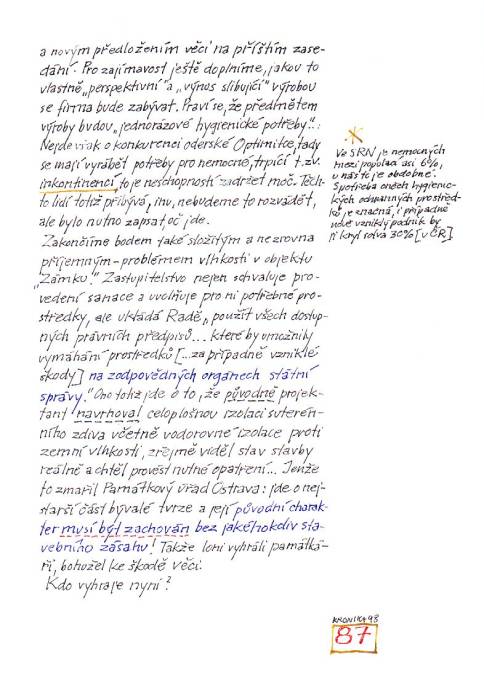 a novým předložením věci na příštím zase-
dání. Pro zajímavost ještě doplníme, jakou to
vlastně „perspektivní" a „výnos slibující" výrobou
se firma bude zabývat. Praví se, že předmětem
výroby budou „jednorázové hygienické potřeby".
Nejde však o konkurenci oderské Optimitce, tady
se mají vyrábět potřeby pro nemocné, trpící t.zv.
inkontinencí, to je neschopností zadržet moč. Těch-
to lidí totiž přibývá, inu, nebudeme to rozvádět,
ale bylo nutno zapsat oč jde.
Zakončíme bodem také složitým a nezrovna
příjemným - problémem vlhkosti v objektu
„Zámku". Zastupitelstvo nejen schvaluje pro-
vedení sanace a uvolňuje pro ni potřebné pro-
středky, ale ukládá Radě „použít všech dostup-
ných právních předpisů... které by umožnily
vymáhání prostředků [...za případně vzniklé
škody] na zodpovědných orgánech státní
správy." Ono totiž jde o to, že původně projek-
tant navrhoval celoplošnou izolaci suterén-
ního zdiva včetně vodorovné izolace proti
zemní vlhkosti, zřejmě viděl stav stavby
reálně a chtěl provést nutné opatření... Jenže
to zmařil Památkový úřad Ostrava: jde o nej-
starší část bývalé tvrze a její původní charak-
ter musí být zachován bez jakéhokoliv sta-
vebního zásahu! Takže loni vyhráli památká-
ři, bohužel ke škodě věci.
Kdo vyhraje nyní?
Ve SRN je nemocných
mezi populací asi 6%,
u nás to je obdobné.
Spotřeba oněch hygienic-
kých ochranných prostřed-
ků je značná, i případně
nově vzniklý podnik by
ji kryl sotva 30% [v ČR].
KRONIKA 98
87